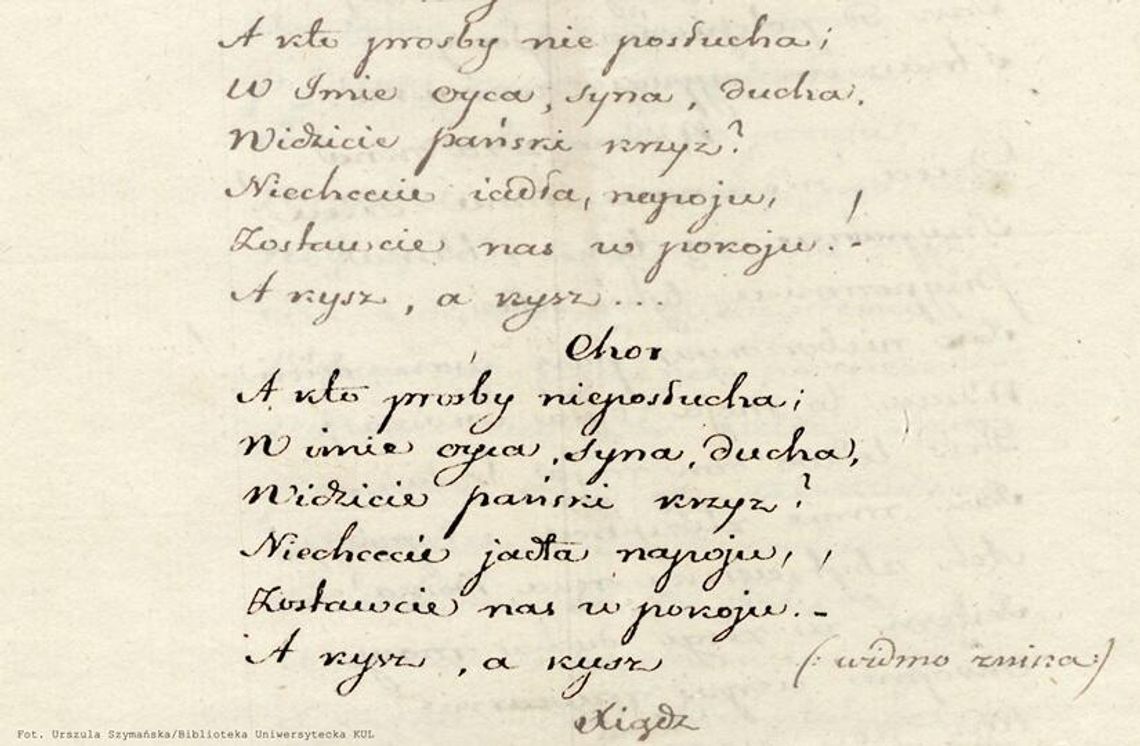 A kto prosby nie posłucha;
W Imie oyca, syna, ducha.
Widzicie pański krzyz?
Niechcecie iadła, napoju,
Zostawcie nas w pokoju.-
A kysz, a kysz...
Chor
A kto prośby nieposłucha;
W imie oyca, syna, ducha,
Widzicie pański krzyz?
Niechcecie jadła napoju,,
Zostawcie nas w pokoju.-
A kysz, a kysz (: widmo znika:)
Xiądz
Fot. Urszula Szymańska/Biblioteka Uniwersytecka KUL